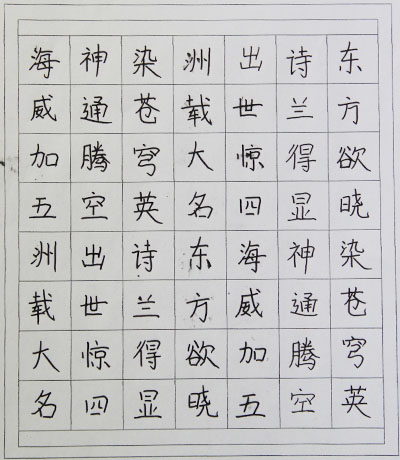 东方欲晓染苍穹英
诗兰得显神通腾空
出世惊四海威加五
洲载大名东方欲晓
染苍穹英诗兰得显
神通腾空出世惊四
海威加五洲载大名